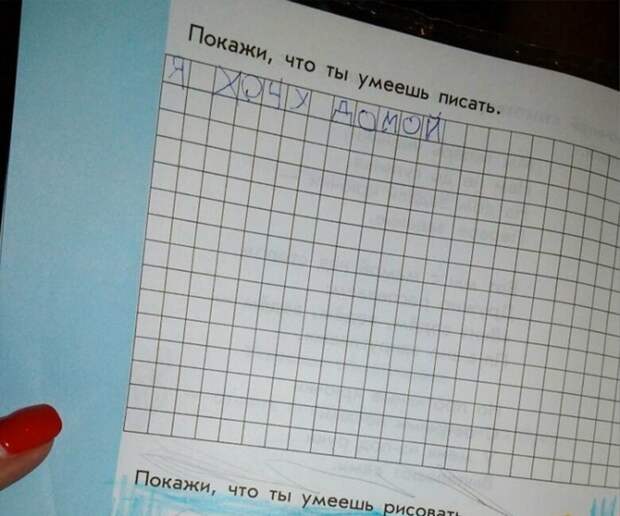 Покажи, что ты умеешь писать.
Я ХОЧУ ДОМОЙ
Покажи, что ты умеешь рисовать